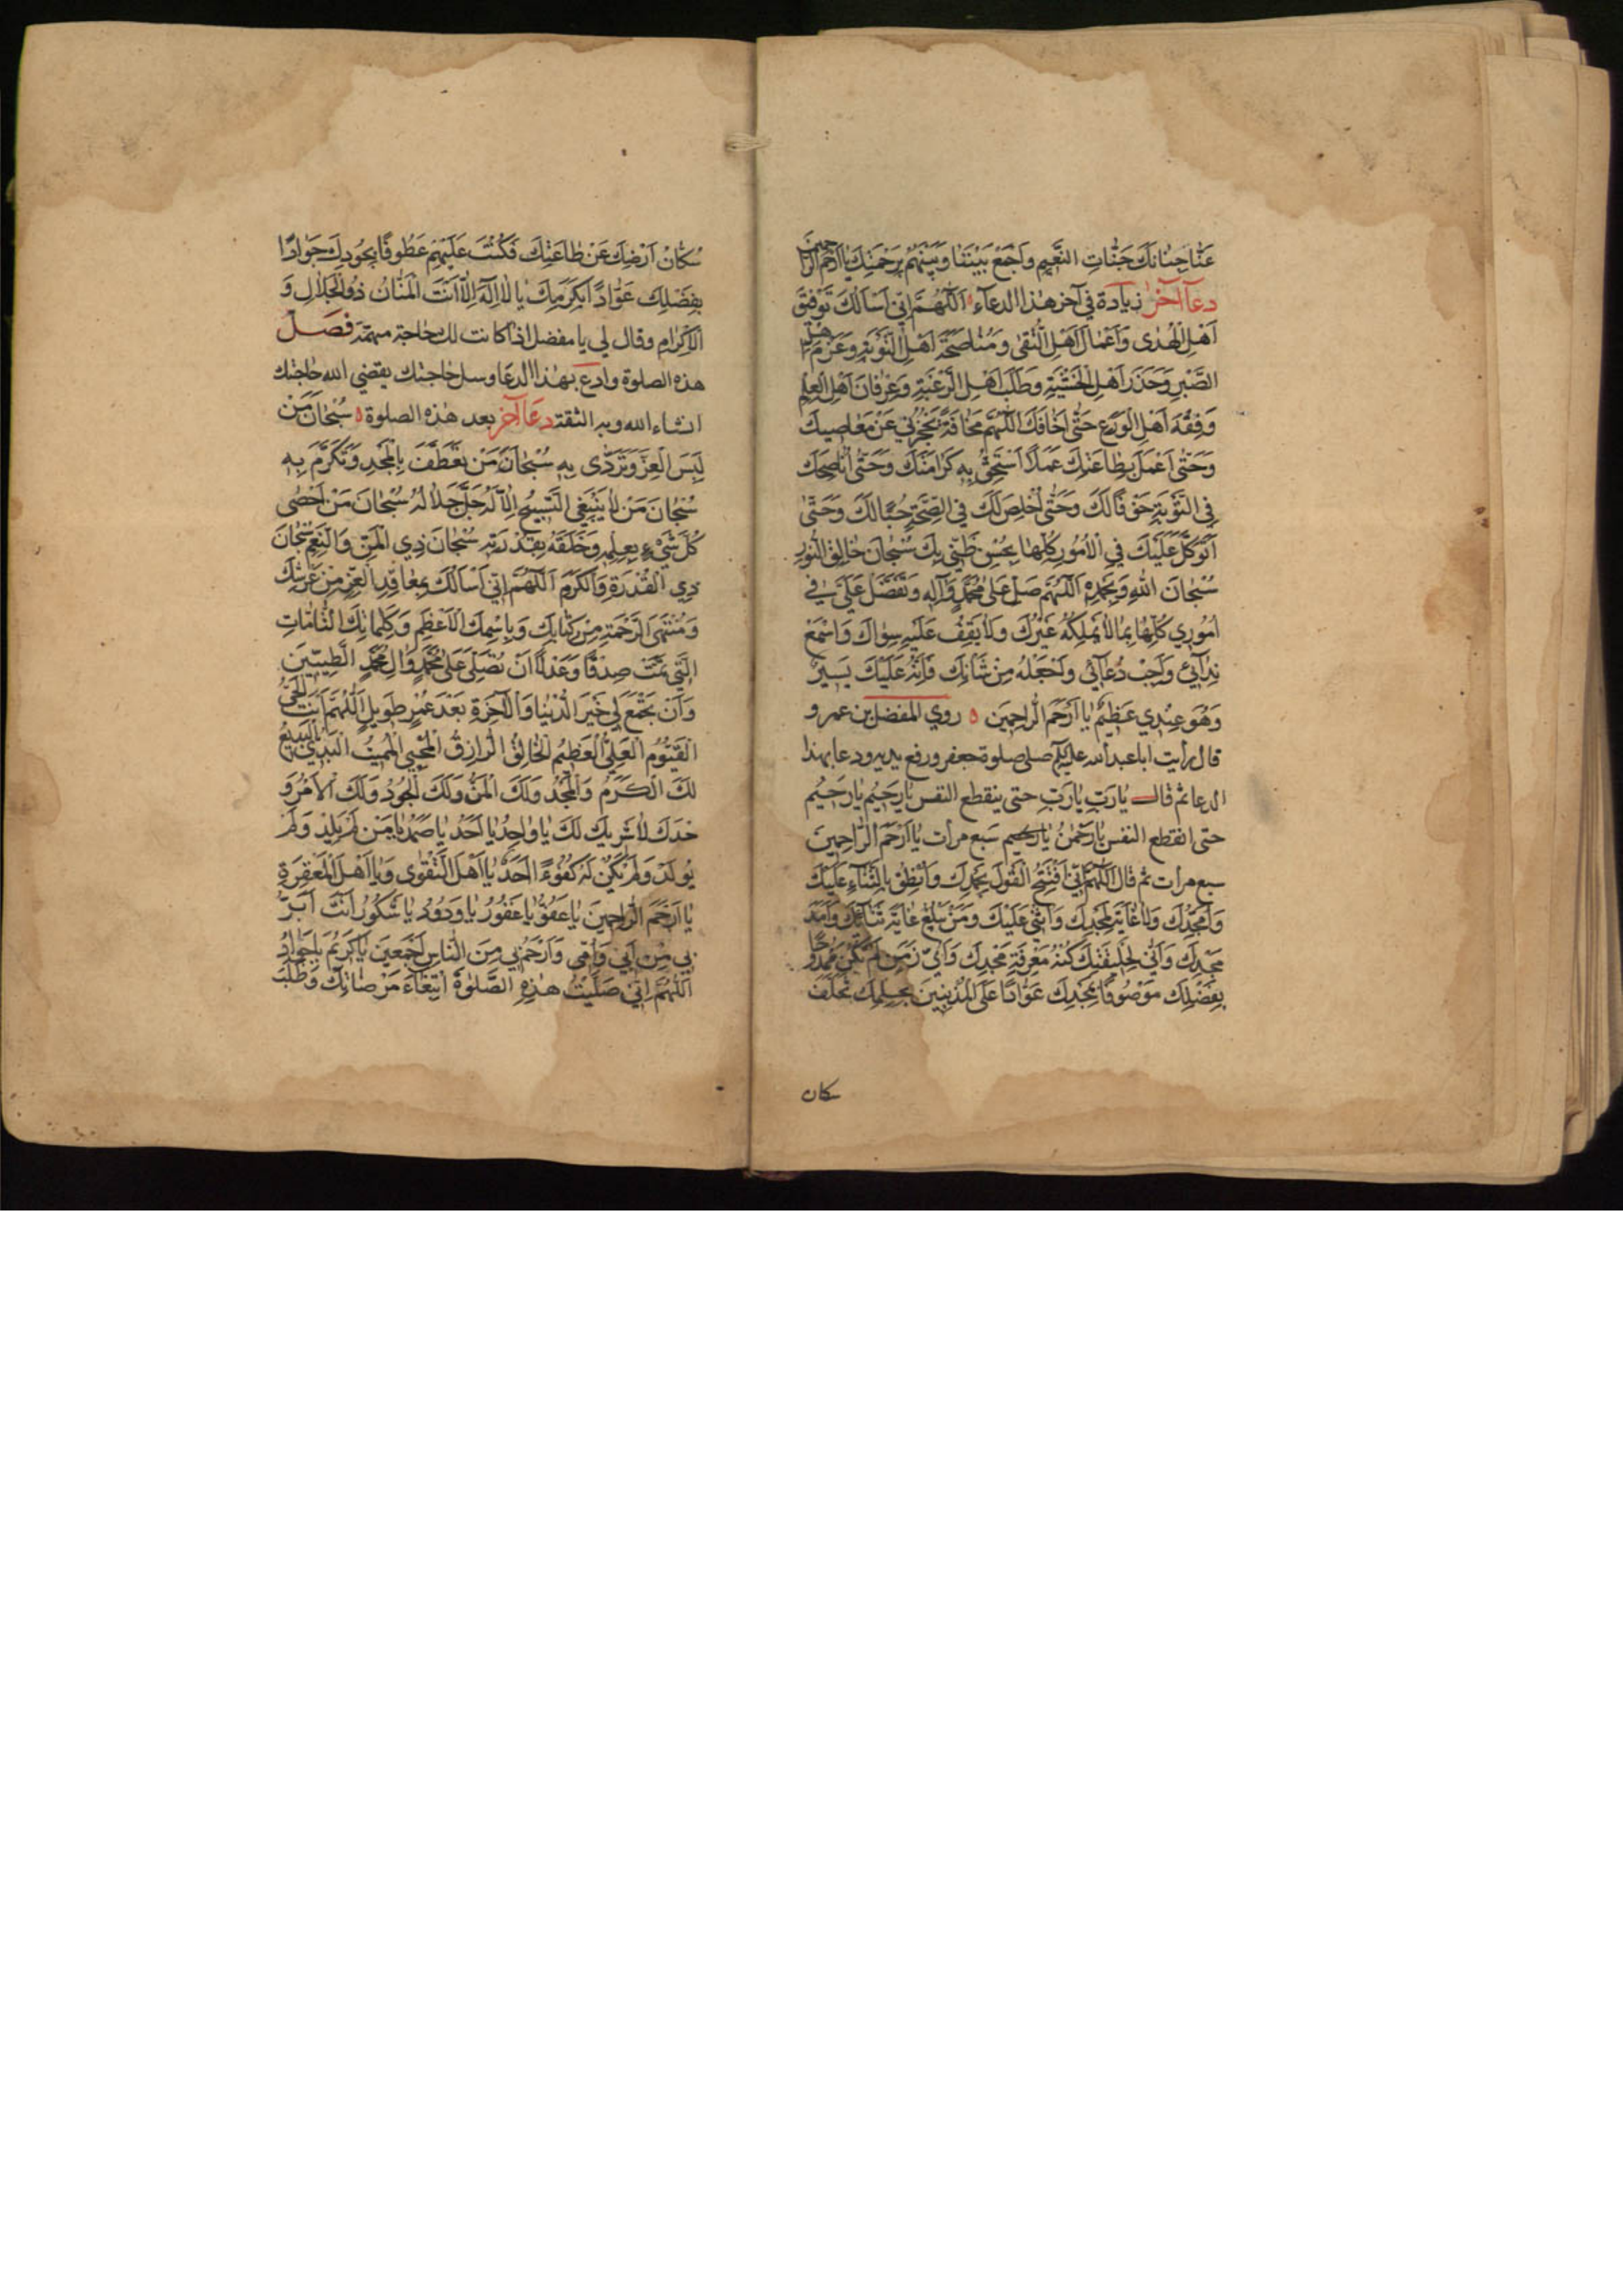 عَنَّا جِنَانَكَ جَنَّاتِ النَّعِيمِ وَاجْمَعْ بَيْنَنَا وَبَيْنَهُمْ بِرَحْمَتِكَ يَا اَرْحَمَ الرَّاحِمِينَ
دعآء آخر زيادة في آخر هذا الدعآء اَللّٰهُمَّ اِنِّي اَسْاَلُكَ تَوْفِيقَ
اَهْلِ الْهُدٰى وَاَعْمَالَ اَهْلِ التُّقٰى وَمُنَاصَحَةَ اَهْلِ التَّوْبَةِ وَعَزْمَ اَهْلِ
الصَّبْرِ وَحَذَرَ اَهْلِ الْخَشْيَةِ وَطَلَبَ اَهْلِ الرَّغْبَةِ وَعِرْفَانَ اَهْلِ الْعِلْمِ
وَفِقْهَ اَهْلِ الْوَرَعِ حَتّٰى اَخَافَكَ اللّٰهُمَّ مَخَافَةً تَحْجُزُنِي عَنْ مَعَاصِيكَ
وَحَتّٰى اَعْمَلَ بِطَاعَتِكَ عَمَلًا اَسْتَحِقُّ بِهِ كَرَامَتَكَ وَحَتّٰى اُنَاصِحَكَ
فِي التَّوْبَةِ خَوْفًا لَكَ وَحَتّٰى اُخْلِصَ لَكَ فِي النَّصِيحَةِ حُبًّا لَكَ وَحَتّٰى
اَتَوَكَّلَ عَلَيْكَ فِي الْاُمُورِ كُلِّهَا بِحُسْنِ ظَنِّي بِكَ سُبْحَانَ خَالِقِ النُّورِ
سُبْحَانَ اللهِ وَبِحَمْدِهِ اَللّٰهُمَّ صَلِّ عَلٰى مُحَمَّدٍ وَآلِهِ وَتَفَضَّلْ عَلَيَّ فِي
اُمُورِي كُلِّهَا بِمَا لَا يَمْلِكُهُ غَيْرُكَ وَلَا يَقِفُ عَلَيْهِ سِوَاكَ وَاسْمَعْ
نِدَآئِي وَاَجِبْ دُعَآئِي وَاجْعَلْهُ مِنْ شَانِكَ فَاِنَّهُ عَلَيْكَ يَسِيرٌ
وَهُوَ عِنْدِي عَظِيمٌ يَا اَرْحَمَ الرَّاحِمِينَ ه روي المفضل بن عمر و
قال رأيت ابا عبد الله عليه السلم صلى صلوة جعفر و رفع يديه ودعا بهذا
الدعا ثم قال يَارَبِّ يَارَبِّ حتى ينقطع النفس يَارَحِيمُ يَارَحِيمُ
حتى انقطع النفس يَارَحْمٰنُ يَارَحيم سَبع مرات يَا اَرْحَمَ الرَّاحِمِينَ
سبع مرات ثم قال اَللّٰهُمَّ اِنِّي اَفْتَتِحُ الْقَوْلَ بِحَمْدِكَ وَاَنْطِقُ بِالثَّنَآءِ عَلَيْكَ
وَاُمَجِّدُكَ وَلَا غَايَةَ لِمَجْدِكَ وَاُثْنِي عَلَيْكَ وَمَنْ يَبْلُغُ غَايَةَ ثَنَآئِكَ وَاَمَدَ
مَجْدِكَ وَاَنّٰى لِخَلِيقَتِكَ كُنْهُ مَعْرِفَةِ مَجْدِكَ وَاَيُّ زَمَنٍ لَمْ تَكُنْ مَمْدُوحًا
بِفَضْلِكَ مَوْصُوفًا بِمَجْدِكَ عَوَّادًا عَلَى الْمُذْنِبِينَ بِحِلْمِكَ تَخَلَّفَ
سكان
سُكَّانُ اَرْضِكَ عَنْ طَاعَتِكَ فَكُنْتَ عَلَيْهِمْ عَطُوفًا بِجُودِكَ جَوَادًا
بِفَضْلِكَ عَوَّادًا بِكَرَمِكَ يَا لَا اِلٰهَ اِلَّا اَنْتَ الْمَنَّانُ ذُو الْجَلَالِ وَ
الْاِكْرَامِ وقال لي يا مفضل اذا كانت لك حاجة مهمة فصَلِّ
هذه الصلوة وادع بهذا الدعا وسل حاجتك يقضي الله حاجتك
انشاء الله وبه الثقة دعَا آخر بعد هذه الصلوة ه سُبْحَانَ مَنْ
لَبِسَ الْعِزَّ وَتَرَدّٰى بِهِ سُبْحَانَ مَنْ تَعَطَّفَ بِالْمَجْدِ وَتَكَرَّمَ بِهِ
سُبْحَانَ مَنْ لَا يَنْبَغِي التَّسْبِيحُ اِلَّا لَهُ جَلَّ جَلَالُهُ سُبْحَانَ مَنْ اَحْصٰى
كُلَّ شَيْءٍ بِعِلْمِهِ وَخَلَقَهُ بِقُدْرَتِهِ سُبْحَانَ ذِي الْمَنِّ وَالنِّعَمِ سُبْحَانَ
ذِي الْقُدْرَةِ وَالْكَرَمِ اَللّٰهُمَّ اِنِّي اَسْاَلُكَ بِمَعَاقِدِ الْعِزِّ مِنْ عَرْشِكَ
وَمُنْتَهَى الرَّحْمَةِ مِنْ كِتَابِكَ وَبِاسْمِكَ الْاَعْظَمِ وَكَلِمَاتِكَ التَّامَّاتِ
الَّتِي تَمَّتْ صِدْقًا وَعَدْلًا اَنْ تُصَلِّيَ عَلٰى مُحَمَّدٍ وَآلِ مُحَمَّدٍ الطَّيِّبِينَ
وَاَنْ تَجْمَعَ لِي خَيْرَ الدُّنْيَا وَالْآخِرَةِ بَعْدَ عُمْرٍ طَوِيلٍ اَللّٰهُمَّ اَنْتَ الْحَيُّ
الْقَيُّومُ الْعَلِيُّ الْعَظِيمُ الْخَالِقُ الرَّازِقُ الْمُحْيِي الْمُمِيتُ الْبَدِيءُ الْبَدِيعُ
لَكَ الْكَرَمُ وَالْمَجْدُ وَلَكَ الْمَنُّ وَلَكَ الْجُودُ وَلَكَ الْاَمْرُ وَ
حْدَكَ لَا شَرِيكَ لَكَ يَا وَاحِدُ يَا اَحَدُ يَا صَمَدُ يَا مَنْ لَمْ يَلِدْ وَلَمْ
يُولَدْ وَلَمْ يَكُنْ لَهُ كُفُوًا اَحَدٌ يَا اَهْلَ التَّقْوٰى وَيَا اَهْلَ الْمَغْفِرَةِ
يَا اَرْحَمَ الرَّاحِمِينَ يَا عَفُوُّ يَا غَفُورُ يَا وَدُودُ يَا شَكُورُ اَنْتَ اَبَرُّ
بِي مِنْ اَبِي وَاُمِّي وَاَرْحَمُ بِي مِنَ النَّاسِ اَجْمَعِينَ يَا كَرِيمُ يَا جَوَادُ
اَللّٰهُمَّ اِنِّي صَلَّيْتُ هٰذِهِ الصَّلٰوةَ ابْتِغَاءَ مَرْضَاتِكَ وَطَلَبَ